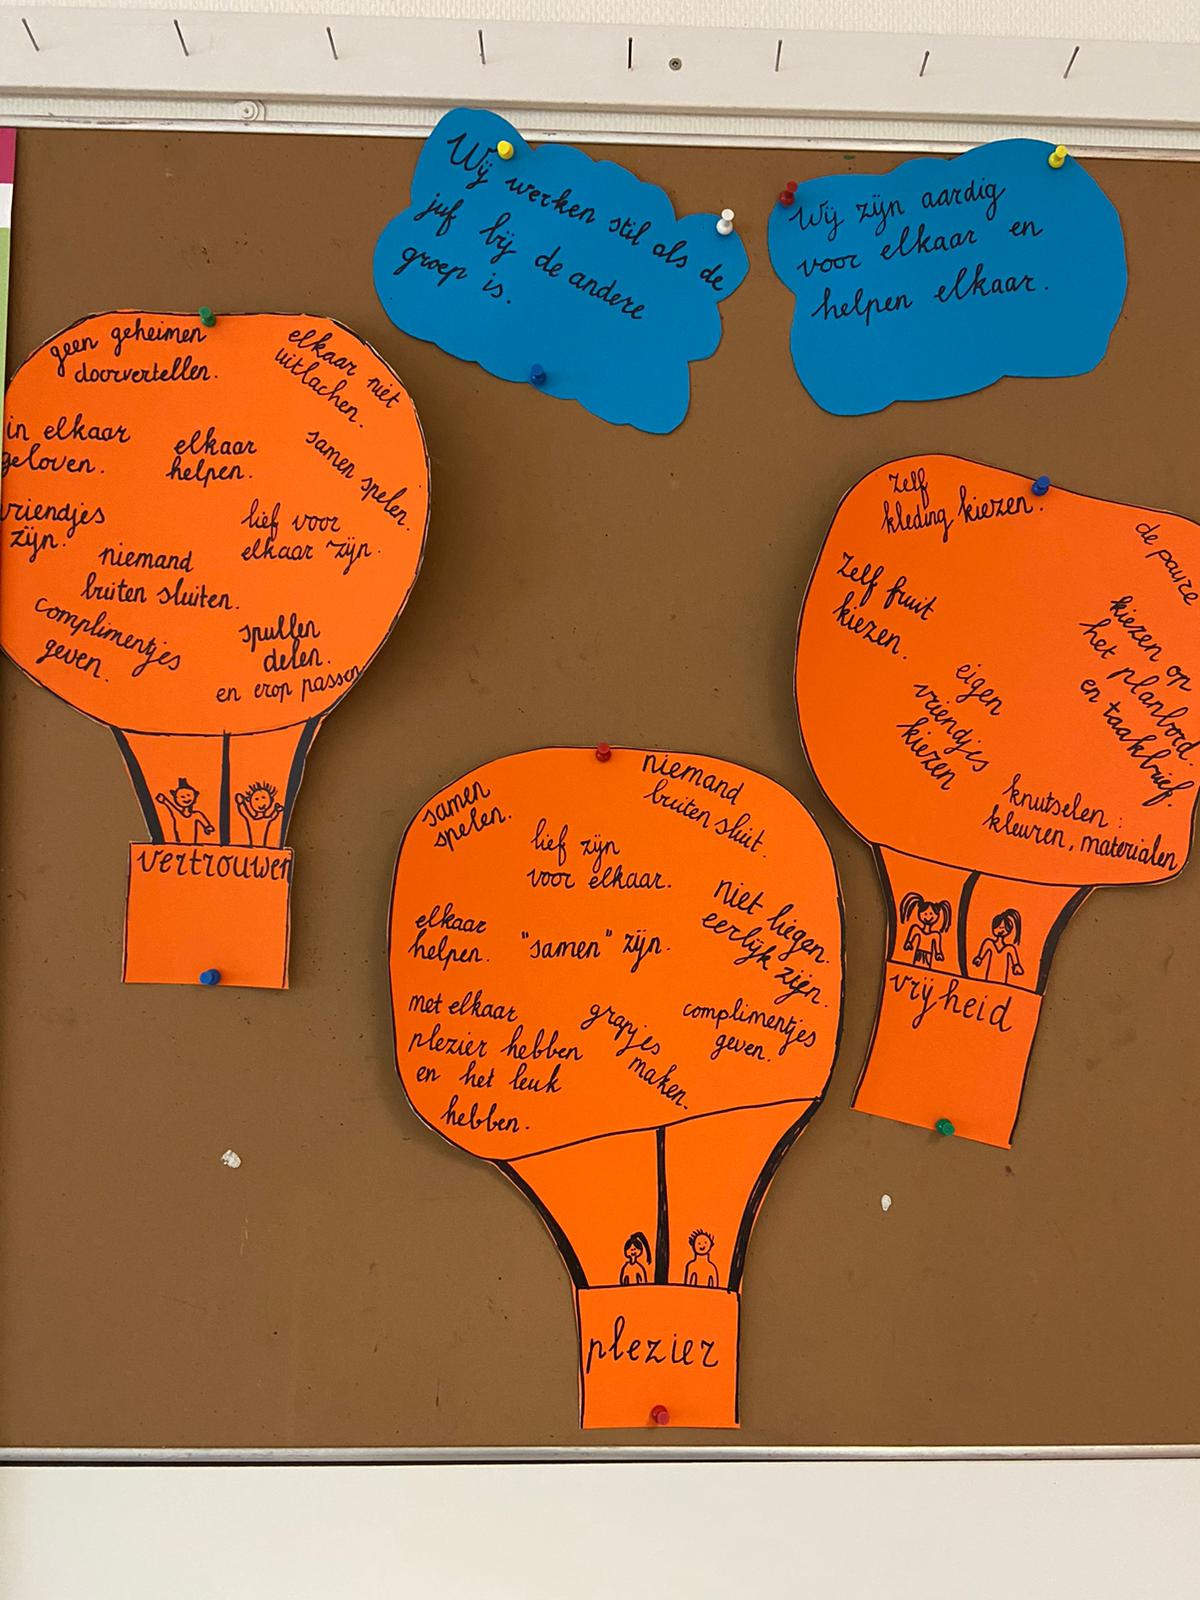 Wij werken stil als de
juf bij de andere
groep is.
Wij zijn aardig
voor elkaar en
helpen elkaar.
geen geheimen
doorvertellen.
elkaar niet
uitlachen.
in elkaar
geloven.
elkaar
helpen.
samen spelen.
vriendjes
zijn.
lief voor
elkaar zijn.
niemand
buiten sluiten.
complimentjes
geven.
spullen
delen.
en erop passen
vertrouwen
zelf
kleding kiezen.
de pauze
zelf fruit
kiezen.
kiezen op
het planbord.
en taakbrief.
eigen
vriendjes
kiezen
knutselen:
kleuren, materialen
vrijheid
samen
spelen.
niemand
buiten sluit.
lief zijn
voor elkaar.
niet liegen.
eerlijk zijn.
elkaar
helpen.
"samen" zijn.
met elkaar
plezier hebben
en het leuk
hebben.
grapjes
maken.
complimentjes
geven.
plezier